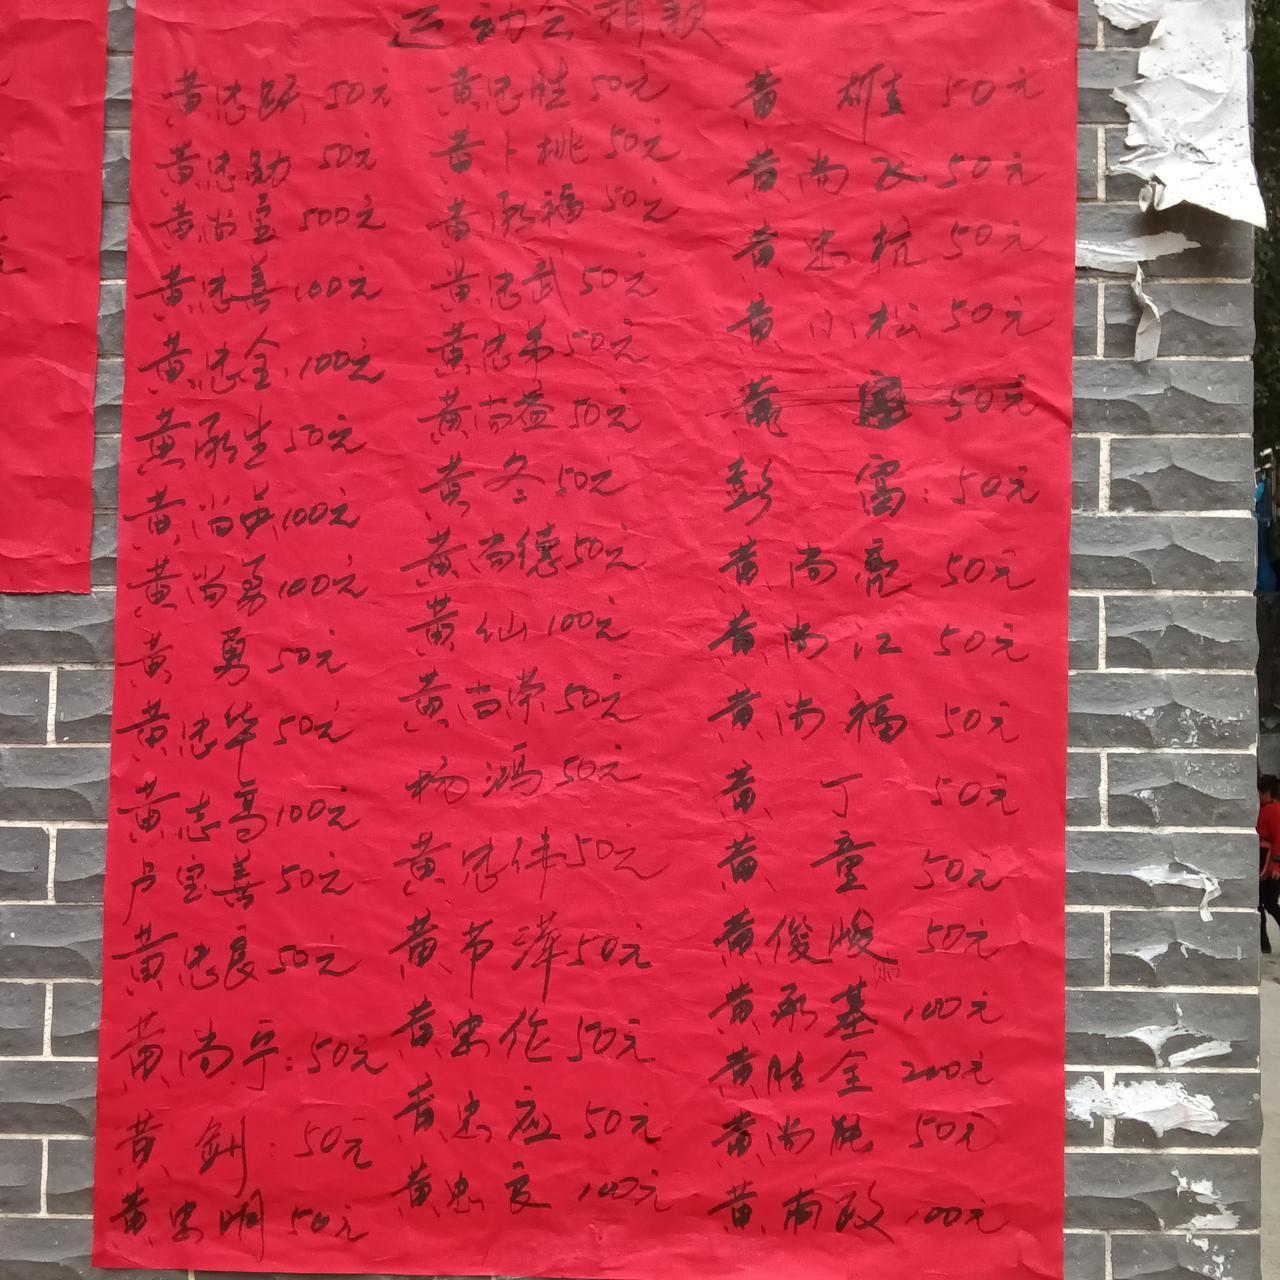 运动会捐款
黄忠跃 50元
黄忠勋 50元
黄尚宝 500元
黄忠善 100元
黄忠全 100元
黄承生 50元
黄尚英 100元
黄尚勇 100元
黄 勇 50元
黄忠华 50元
黄志高 100元
卢宝善 50元
黄忠良 50元
黄尚宁: 50元
黄 钊: 50元
黄忠明 50元
黄忠胜 50元
黄卜桃 50元
黄承福 50元
黄忠武 50元
黄忠弟 50元
黄尚益 50元
黄冬 50元
黄尚德 50元
黄仙 100元
黄尚荣 50元
杨鸿 50元
黄忠伟 50元
黄节萍 50元
黄忠伦 50元
黄忠应 50元
黄忠良 100元
黄 雄 50元
黄尚 50元
黄忠杭 50元
黄小松 50元
黄 50元
彭 富: 50元
黄尚亮 50元
黄尚江 50元
黄尚福 50元
黄 丁 50元
黄 童 50元
黄俊峻 50元
黄承基 100元
黄胜全 200元
黄尚能 50元
黄南政 100元